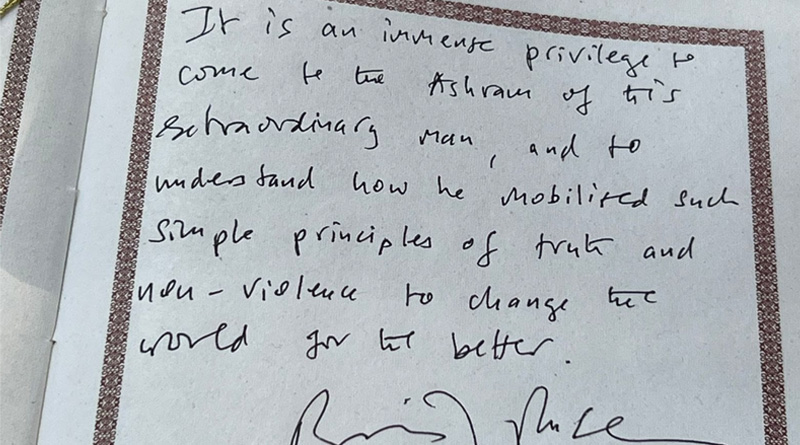 It is an immense privilege to
come to the Ashram of this
extraordinary man, and to
understand how he mobilised such
simple principles of truth and
non-violence to change the
world for the better.